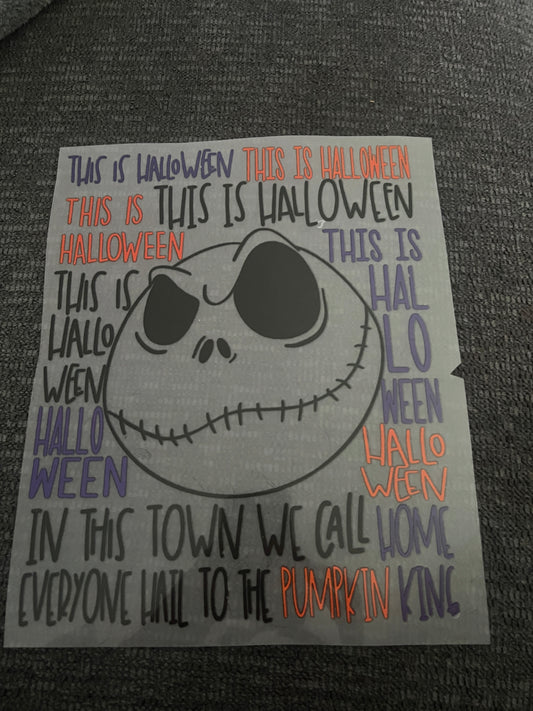 THIS IS HALLOWEEN THIS IS HALLOWEEN
THIS IS THIS IS HALLOWEEN
HALLOWEEN THIS IS
THIS IS HAL
HALLO LO
WEEN WEEN
HALLO HALLO
WEEN WEEN
IN THIS TOWN WE CALL HOME
EVERYONE HAIL TO THE PUMPKIN KING